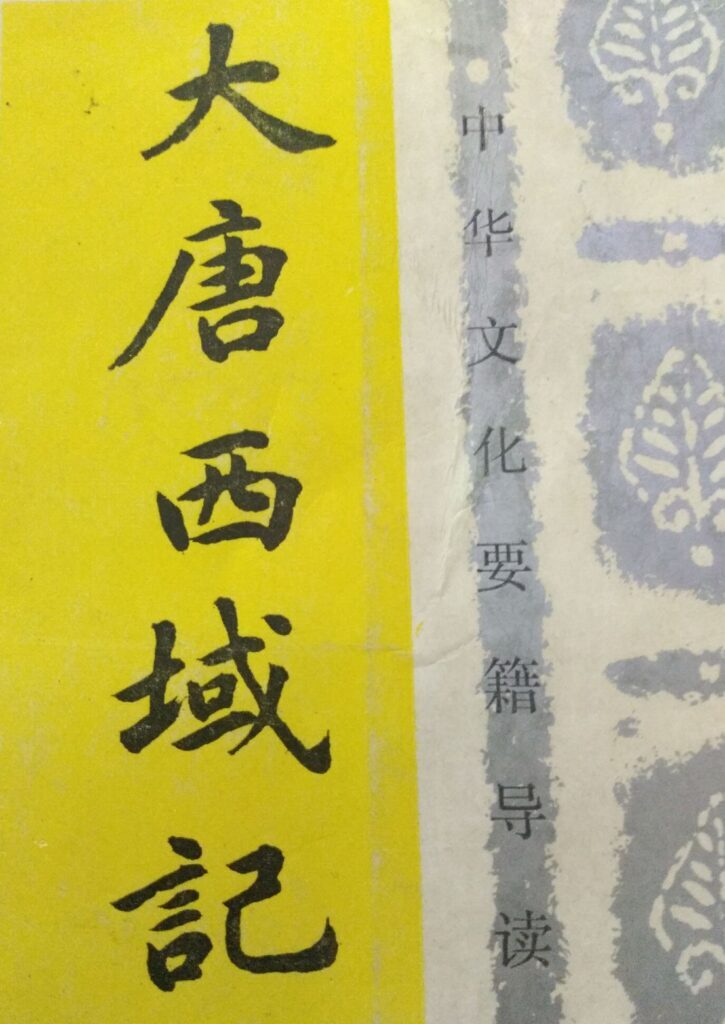 大唐西域記
中华文化要籍导读